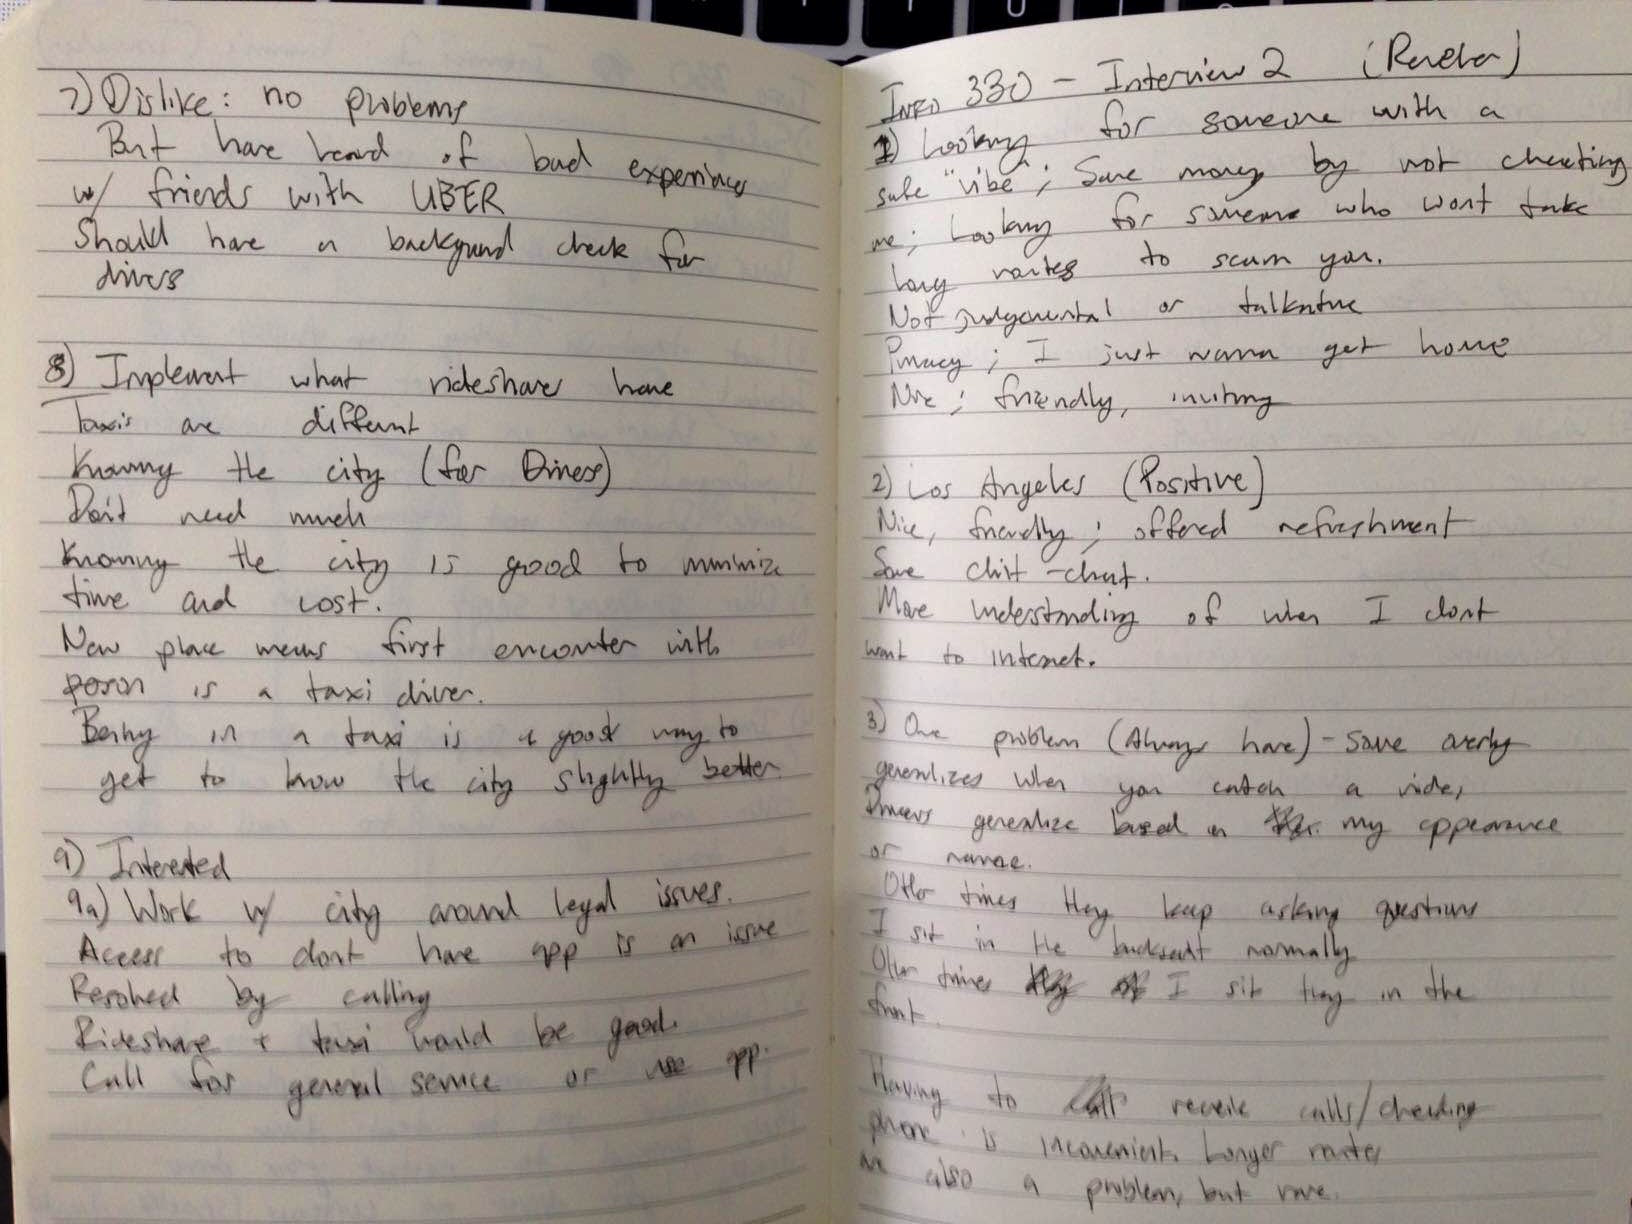 7) Dislike: no problems
But have heard of bad experiences
w/ friends with UBER
Should have a background check for
drivers
8) Implement what rideshares have
Taxis are different
Knowing the city (for Drivers)
Don't need much
Knowing the city is good to minimize
time and cost.
New place means first encounter with
person is a taxi driver.
Being in a taxi is a good way to
get to know the city slightly better
9) Interested
9a) Work w/ city around legal issues.
Access to dont have app is an issue
Resolved by calling
Rideshare + taxi would be good.
Call for general service or use app.
INFO 330 - Interview 2
1) Looking for someone with a
safe "vibe"; Save money by not cheating
me; Looking for someone who wont take
long routes to scam you.
Not judgemental or talkative
Privacy; I just wanna get home
Nice; friendly, inviting
2) Los Angeles (Positive)
Nice, friendly; offered refreshment
Some chit-chat.
More understanding of when I dont
want to interact.
3) One problem (Always have) - Some overly
generalizes when you catch a ride,
Drivers generalize based on my appearance
or name.
Other times they keep asking questions
I sit in the backseat normally
Other times I sit in the
front.
Having to receive calls/checking
phone is inconvenient. Longer routes
are also a problem, but rare.